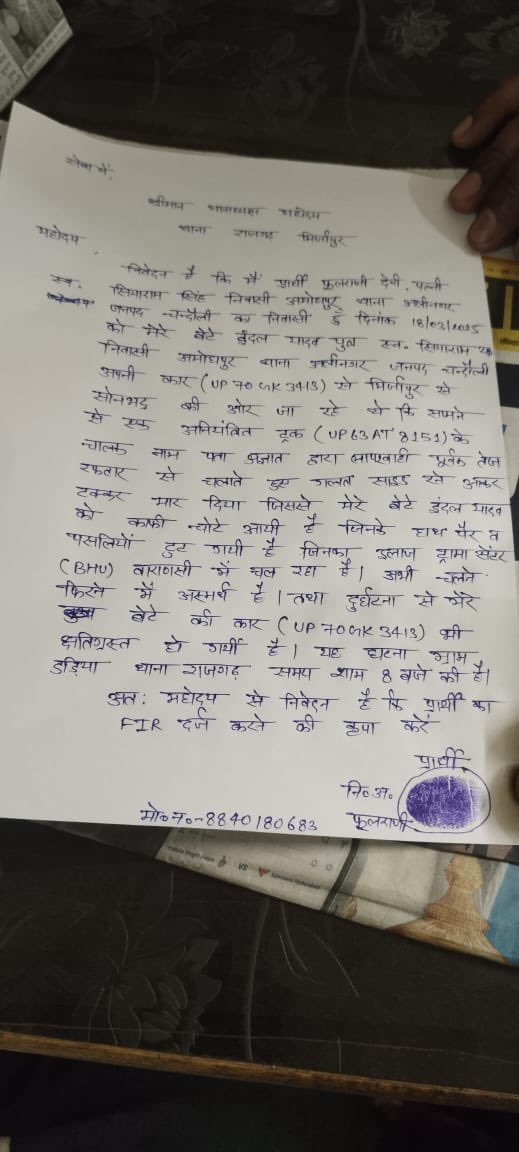 सेवा में,
श्रीमान थानाध्यक्ष महोदय
थाना राजगढ़ मिर्जापुर
महोदय
निवेदन है कि मैं प्रार्थी फूलराणी देवी, पत्नी
स्व. सियाराम सिंह निवासी अमोघपुर थाना अलीनगर
जनपद चन्दौली का निवासी है दिनांक 18/03/2025
को मेरे बेटे इंदल यादव पुत्र स्व. सियाराम
निवासी अमोघपुर थाना अलीनगर जनपद चन्दौली
अपनी कार (UP 70 GK 3413) से मिर्जापुर से
सोनभद्र की ओर जा रहे थे कि सामने
से एक अनियंत्रित ट्रक (UP63 AT 8151) के
चालक नाम पता अज्ञात द्वारा लापरवाही पूर्वक तेज
रफ्तार से चलाते हुए गलत साइड से आकर
टक्कर मार दिया जिससे मेरे बेटे इंदल यादव
को काफी चोटे आयी है जिनके हाथ पैर व
पसलियाँ टुट गयी है जिनका इलाज ट्रामा सेंटर
(BHU) वाराणसी में चल रहा है। अभी चलने
फिरने में असमर्थ है। तथा दुर्घटना से मेरे
बेटे की कार (UP 70GK 3413) भी
क्षतिग्रस्त हो गयी है। यह घटना ग्राम
डड़िया थाना राजगढ़ समय शाम 8 बजे की है।
अतः महोदय से निवेदन है कि प्रार्थी का
FIR दर्ज करने की कृपा करें
प्रार्थी
नि० अ०
फूलराणी
मो० न०-8840180683
VS